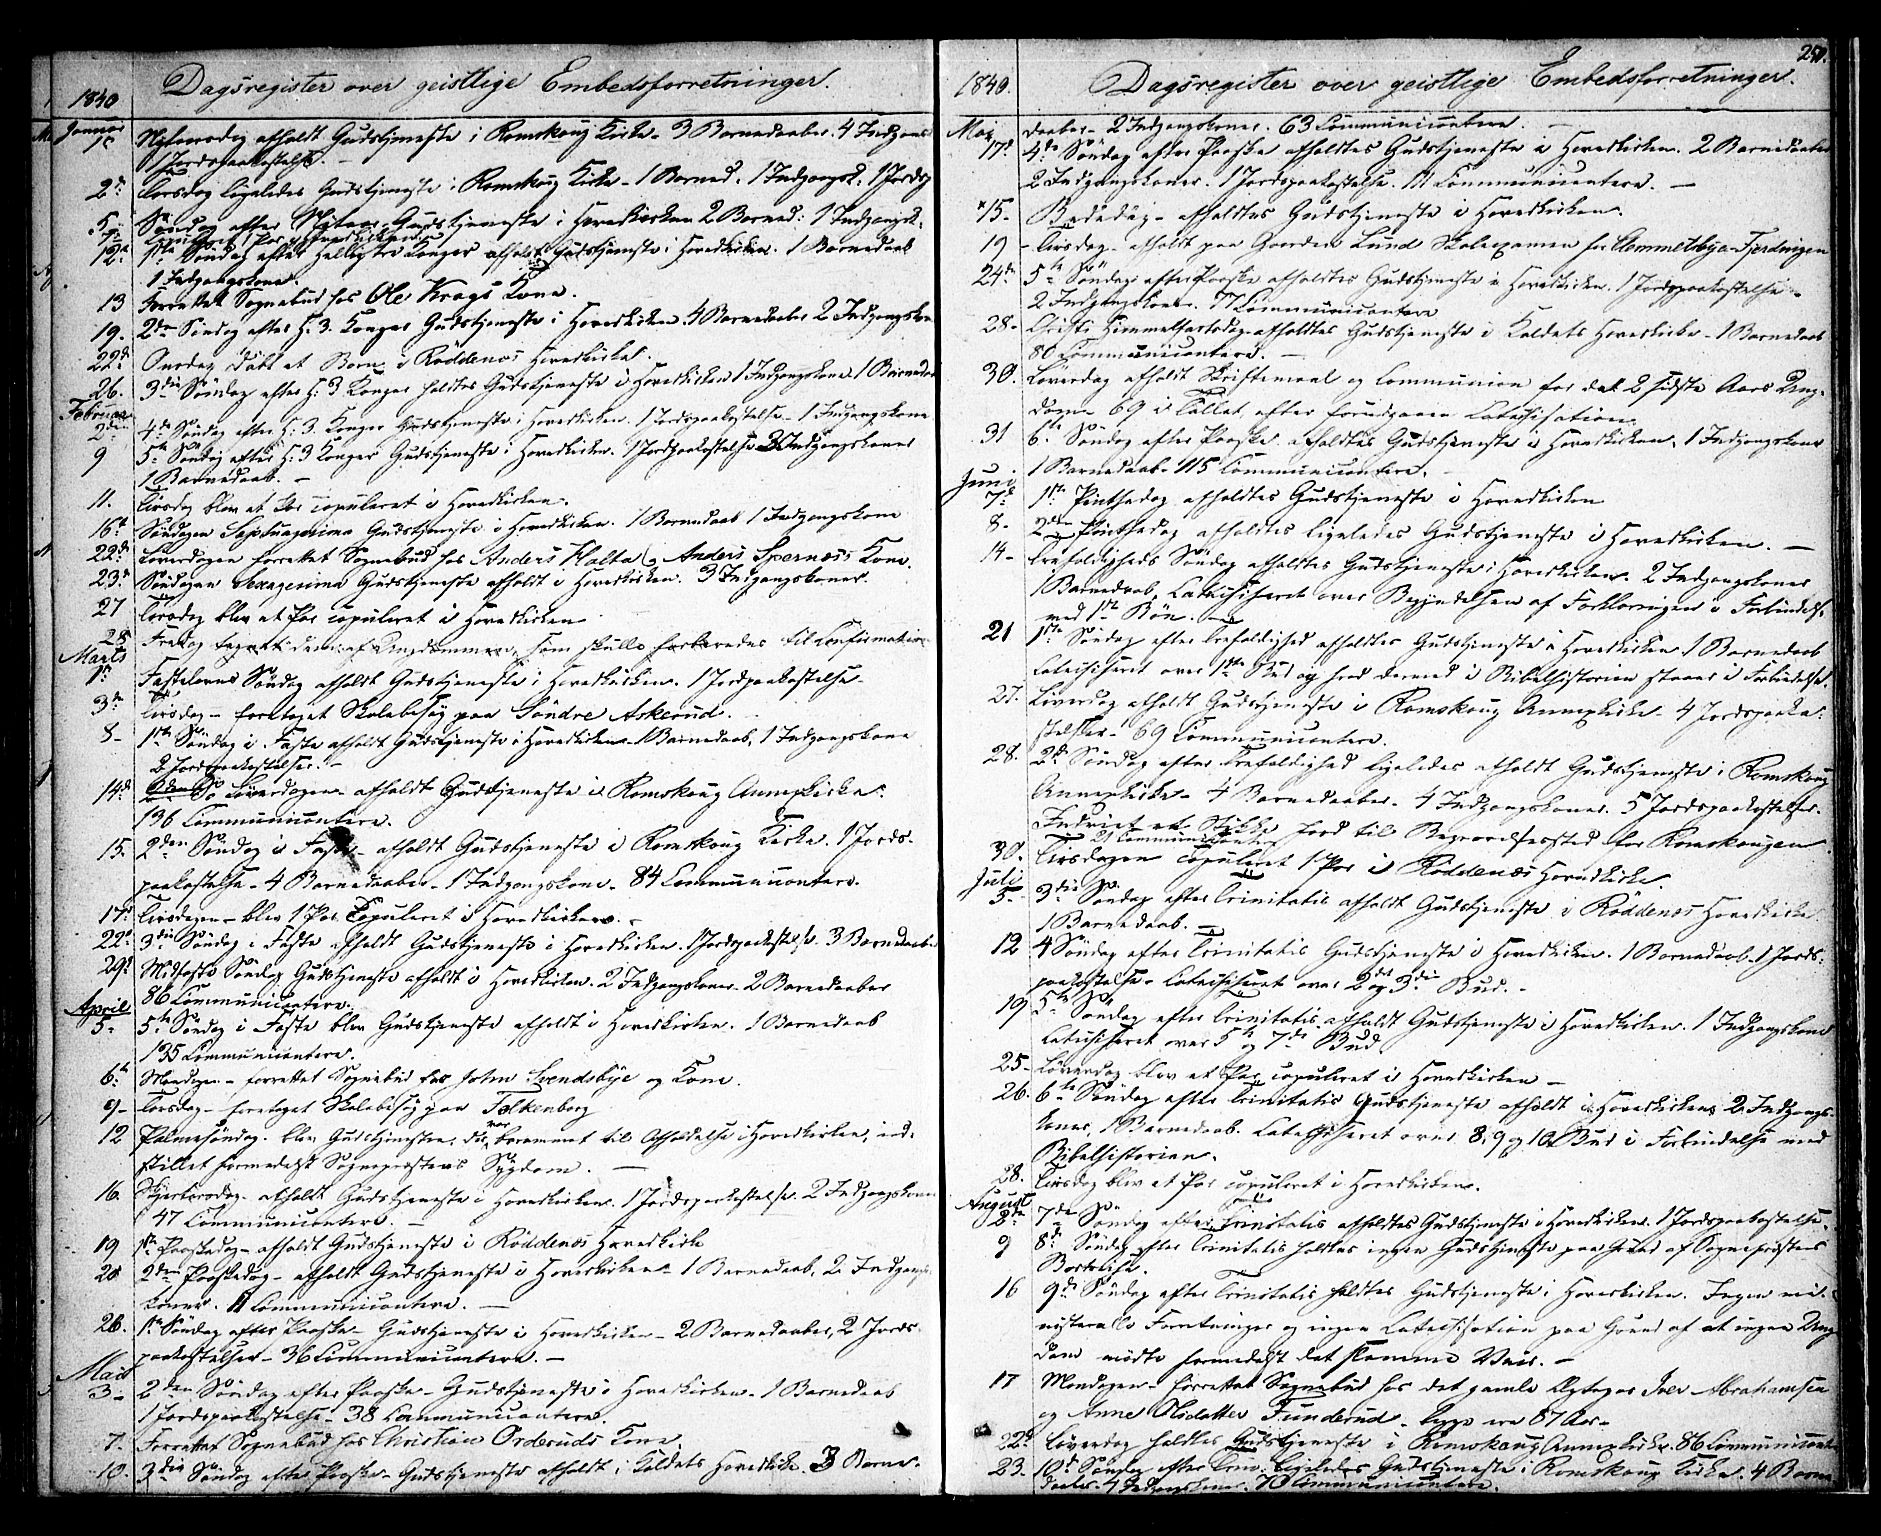 1840 Dagsregister over geistlige Embedsforretninger.
Januar
1ste Nytaarsdag afholdt Gudstjeneste i Romskoug Kirke - 3 Barnedaaber. 4 Indgangs
1 Jordspaakastelse. -
2den Torsdag ligeledes Gudstjeneste i Romskoug Kirke - 1 Barned. 1 Indgangsk. 1 Jordsp
5te Søndag efter Nytaar Gudstjeneste i Hovedkirken 2 Barned: 1 Indgangsk.
12te 1ste Søndag efter Helligtre Konger afholdt Gudstjeneste i Hovedkirken. 1 Barnedaab
1 Indgangskone.
13 Forrettet Sognebud hos Ole Krogs Kone.
19. 2den Søndag efter H. 3. Konger Gudstjeneste i Hovedkirken 4 Barnedaaber 2 Indgangskon
22de Onsdag døbt et Barn i Røddenæs Hovedkirke.
26. 3die Søndag efter H. 3 Konger holdtes Gudstjeneste i Hovedkirken 1 Indgangskone 1 Barnedaa
Februar
2den 4de Søndag efter H. 3. Konger Gudstjeneste i Hovedkirken. 1 Jordspaakastelse - 1 Indgangskone
9 5te Søndag efter H. 3 Konger Gudstjeneste i Hovedkirken. 1 Jordpaakastelse 2 Indgangskoner
1 Barnedaab. -
11. Tirsdag blev et Par copuleret i Hovedkirken.
16de Søndagen Septuagesima Gudstjeneste i Hovedkirken. 1 Barnedaab 1 Indgangskone
22de Løverdagen forrettet Sognebud hos Anders Holta og Anders Spernæss Kone.
23de Søndagen Sexagesima Gudstjeneste afholdt i Hovedkirken. 3 Indgangskoner.
27 Torsdag blev et Par copuleret i Hovedkirken
28 Fredag af Ungdommen, som skulle forberedes til Confirmation
Marts
1ste Fastelavns Søndag afholdt Gudstjeneste i Hovedkirken. 1 Jordpaakastelse -
3de Tirsdag - foretaget Skolebesøg paa Søndre Askerud.
8 - 1ste Søndag i Faste afholdt Gudstjeneste i Hovedkirken - 1 Barnedaab, 1 Indgangskone
2 Jordspaakastelser. -
14de Løverdagen - afholdt Gudstjeneste i Romskoug Annexkirke.
136 Communicantere.
15. 2den Søndag i Faste - afholdt Gudstjeneste i Romskoug Kirke. 1 Jords-
paakastelse - 4 Barnedaaber - 1 Indgangskone - 84 Communicantere.
17de Tirsdagen - blev 1 Par Copuleret i Hovedkirken. -
22de 3die Søndag i Faste afholdt Gudstjeneste i Hovedkirken. 1 Jordspaakastelse. 3 Barnedaaber
29de Midfaste Søndag Gudstjeneste afholdt i Hovedkirken - 2 Indgangskoner - 2 Barnedaaber
86 Communicantere.
April
5- 5te Søndag i Faste blev Gudstjeneste afholdt i Hovedkirken. 1 Barnedaab
135 Communicantere.
6te Mandagen - forrettet Sognebud hos John Svendsbye og Kone.
9 - Torsdag - foretaget Skolebesøg paa Falkenborg
12 Palmesøndag. blev Gudstjenesten, der var berammet til Afholdelse i Hovedkirken, ind-
stillet formedelst Sognepræstens Sygdom. -
16. Skjertorsdag - afholdt Gudstjeneste i Hovedkirken. 1 Jordspaakastelse. 2 Indgangskoner
47 Communicantere. -
19 1ste Paaskedag - afholdt Gudstjeneste i Røddenæs Hovedkirke
20 2den Paaskedag - afholdt Gudstjeneste i Hovedkirken - 1 Barnedaab, 2 Indgangs
koner. 11 Communicantere. -
26. 1ste Søndag efter Paaske - Gudstjeneste i Hovedkirken - 2 Barnedaaber, 2 Jords-
paakastelser - 36 Communicantere. -
Mai
3 - 2den Søndag efter Paaske - Gudstjeneste i Hovedkirken - 1 Barnedaab
1 Jordspaakastelse - 38 Communicantere.
7. Forrettet Sognebud hos Christian Orderuds Kone
10. 3die Søndag efter Paaske - Gudstjeneste afholdt i Kaldets Hovedkirke. 3 Barne-
1840. Dagsregister over geistlige Embedsforretninger.
Mai daaber - 2 Indgangskoner. 63 Communicantere. -
17de 4de Søndag efter Paaske afholdtes Gudstjeneste i Hovedkirken. 2 Barnedaaber
2 Indgangskoner. 1 Jordspaakastelse. 111 Communicantere. -
15 - Bededag - afholdtes Gudstjeneste i Hovedkirken.
19 - Tirsdag - afholdt paa Gaarden Lund Skolexamen for Fjerdingen
24de 5te Søndag efter Paaske afholdtes Gudstjeneste i Hovedkirken. 1 Jordspaakastelse -
2 Indgangskoner. 77 Communicantere
28 - Christi Himmelfartsdag - afholdtes Gudstjeneste i Kaldets Hovedkirke - 1 Barnedaab
80 Communicantere. -
30. Løverdag afholdt Skriftemaal og Communion for det 2 sidste Aars Ung-
dom 69 i Tallet, efter foregaaende Catechisation.
31 6te Søndag efter Paaske afholdtes Gudstjeneste i Hovedkirken, 1 Indgangskone
1 Barnedaab - 115 Communicantere.
Juni
7de 1ste Pintsedag afholdtes Gudstjeneste i Hovedkirken
8 - 2den Pintsedag afholdtes ligeledes Gudstjeneste i Hovedkirken. -
14 - Trefoldigheds Søndag afholdtes Gudstjeneste i Hovedkirken. 2 Indgangskoner
1 Barnedaab, Catechiseret over Begyndelsen af Forklaringen i Forbindelse
med 1ste Bøn.
21 1ste Søndag efter Trefoldighed afholdtes Gudstjeneste i Hovedkirken. 1 Barnedaab
Catechiseret over 1ste Bud og hvad dermed i Bibelhistorien staaer i Forbindelse.
27. Løverdag afholdt Gudstjeneste i Romskoug Annexkirke - 4 Jordspaaka-
stelser - 69 Communicantere.
28. 2den Søndag efter Trefoldighed ligeledes afholdt Gudstjeneste i Romskoug
Annexkirke - 4 Barnedaaber - 4 Indgangskoner. 5 Jordspaakastelser.
Indviet et Stykke Jord til Begravelsessted for Romskougen
Communicantere
30. Tirsdagen copuleret 1 Par i Røddenæs Hovedkirke.
Juli
5 - 3die Søndag efter Trinitatis afholdt Gudstjeneste i Røddenæs Hovedkirke
1 Barnedaab. -
12 4 Søndag efter Trinitatis Gudstjeneste i Hovedkirken. 1 Barnedaab - 1 Jords-
paakastelse - Catechiseret over 2det og 3die Bud. -
19 5te Søndag efter Trinitatis afholdt Gudstjeneste i Hovedkirken. 1 Indgangskone
Catechiseret over 5te og 7de Bud
25 - Løverdag blev et Par copuleret i Hovedkirken -
26. 6te Søndag efter Trinitatis Gudstjeneste afholdt i Hovedkirken 2 Indgangs-
koner, 1 Barnedaab. Catechiseret over 8, 9 og 10de Bud i Forbindelse med
Bibelhistorien.
28. Tirsdag blev et Par copuleret i Hovedkirken.
August
2den 7de Søndag efter Trinitatis afholdtes Gudstjeneste i Hovedkirken. 1 Jordspaakastelse.
9 8de Søndag efter Trinitatis holdtes ingen Gudstjeneste paa Grund af Sognepræstens
Bortreise.
16 9de Søndag efter Trinitatis holdtes Gudstjeneste i Hovedkirken. Ingen mi-
nisterielle Forretninger og ingen Catechisation paa Grund af at ingen Ung
dom mødte formedelst det slemme Veir. -
17 Mandagen - forrettet Sognebud hos det gamle Ægtepar Iver Abrahamsen
og Anne Olsdatter Funderud - begge ere 87 Aar -
22de Løverdag holdtes Gudstjeneste i Romskoug Annexkirke. 86 Communicanter
23. 10de Søndag efter Trin. ligeledes Gudstjeneste i Romskoug Kirke. 4 Barne
daaber - 4 Indgangskoner. 70 Communicantere.